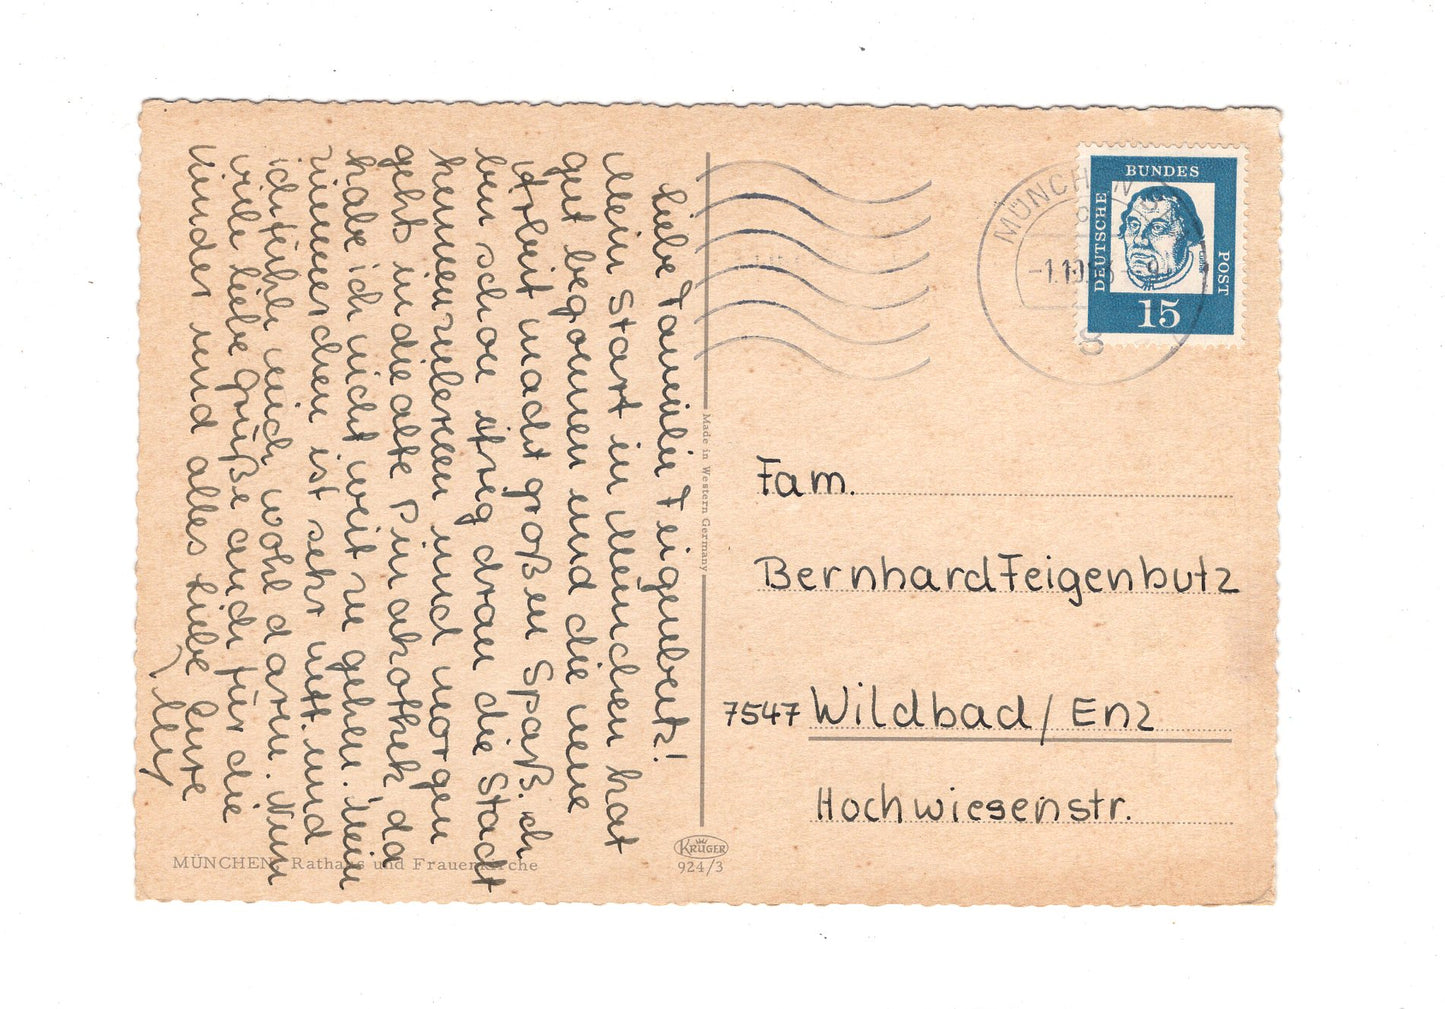 Liebe Familie Feigenbutz!
Mein Start in München hat
gut begonnen und die neue
Arbeit macht großen Spaß. Ich
bin schon drau die Stadt
kennenzulernen und morgen
geht in die alte Pinakothek da
habe ich nicht weit zu gehen. Mein
Zimmerchen ist sehr nett und
ich fühle mich wohl darin. Nun
viele liebe Grüße auch für die
Kinder und alles Liebe Eure
MÜNCHEN, Rathaus und Frauenkirche
Made in Western Germany
KRÜGER
924/3
MÜNCHEN
-1.10.
8
DEUTSCHE
BUNDES
POST
15
Fam.
Bernhard Feigenbutz
7547 Wildbad / Enz
Hochwiesenstr.